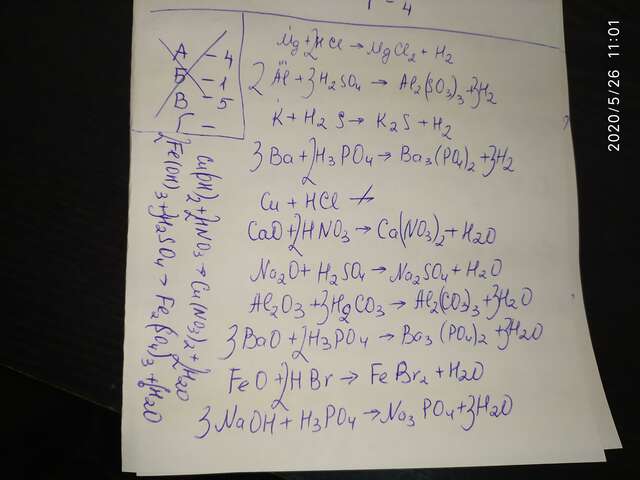 - 4
A - 4
Б - 1
В - 5
Mg + 2HCl → MgCl2 + H2
2Al + 3H2SO4 → Al2(SO3)3 + 3H2
K + H2S → K2S + H2
3Ba + 2H3PO4 → Ba3(PO4)2 + 3H2
Cu + HCl ↛
CaO + 2HNO3 → Ca(NO3)2 + H2O
Na2O + H2SO4 → Na2SO4 + H2O
Al2O3 + 3H2CO3 → Al2(CO3)3 + 3H2O
3BaO + 2H3PO4 → Ba3(PO4)2 + 3H2O
FeO + 2HBr → FeBr2 + H2O
3NaOH + H3PO4 → Na3PO4 + 3H2O
Cu(OH)2 + 2HNO3 → Cu(NO3)2 + 2H2O
2Fe(OH)3 + 3H2SO4 → Fe2(SO4)3 + 6H2O
2020/5/26 11:01